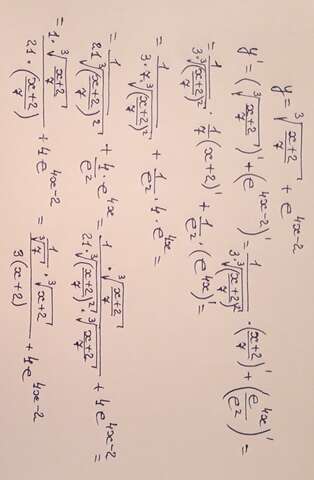 y = ∛((x+2)/7) + e^(4x-2)
y' = (∛((x+2)/7))' + (e^(4x-2))' = 1/(3·∛(((x+2)/7)²)) · ((x+2)/7)' + (e^(4x)/e²)' =
= 1/(3·∛(((x+2)/7)²)) · 1/7 (x+2)' + 1/e² · (e^(4x))' =
= 1/(3·7·∛(((x+2)/7)²)) + 1/e² · 4·e^(4x) =
= 1/(21·∛(((x+2)/7)²)) + (4·e^(4x))/e² = (1·∛((x+2)/7))/(21·∛(((x+2)/7)²)·∛((x+2)/7)) + 4e^(4x-2) =
= (1·∛((x+2)/7))/(21·((x+2)/7)) + 4e^(4x-2) = (1/∛7 · ∛(x+2))/(3(x+2)) + 4e^(4x-2)